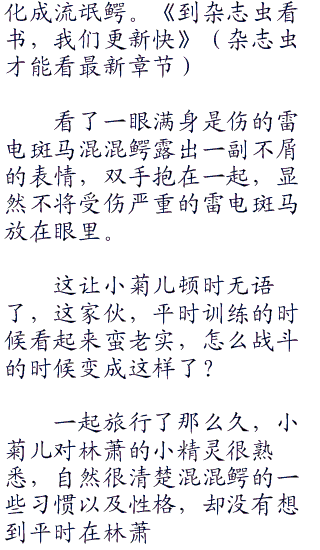 化成流氓鳄。《到杂志虫看
书，我们更新快》（杂志虫
才能看最新章节）
看了一眼满身是伤的雷
电斑马混混鳄露出一副不屑
的表情，双手抱在一起，显
然不将受伤严重的雷电斑马
放在眼里。
这让小菊儿顿时无语
了，这家伙，平时训练的时
候看起来蛮老实，怎么战斗
的时候变成这样了？
一起旅行了那么久，小
菊儿对林萧的小精灵很熟
悉，自然很清楚混混鳄的一
些习惯以及性格，却没有想
到平时在林萧